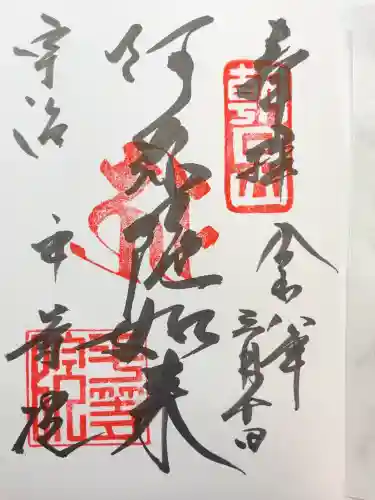 奉拝
朝日山
令八年
三月十日
阿弥陀如来
宇治
平等院